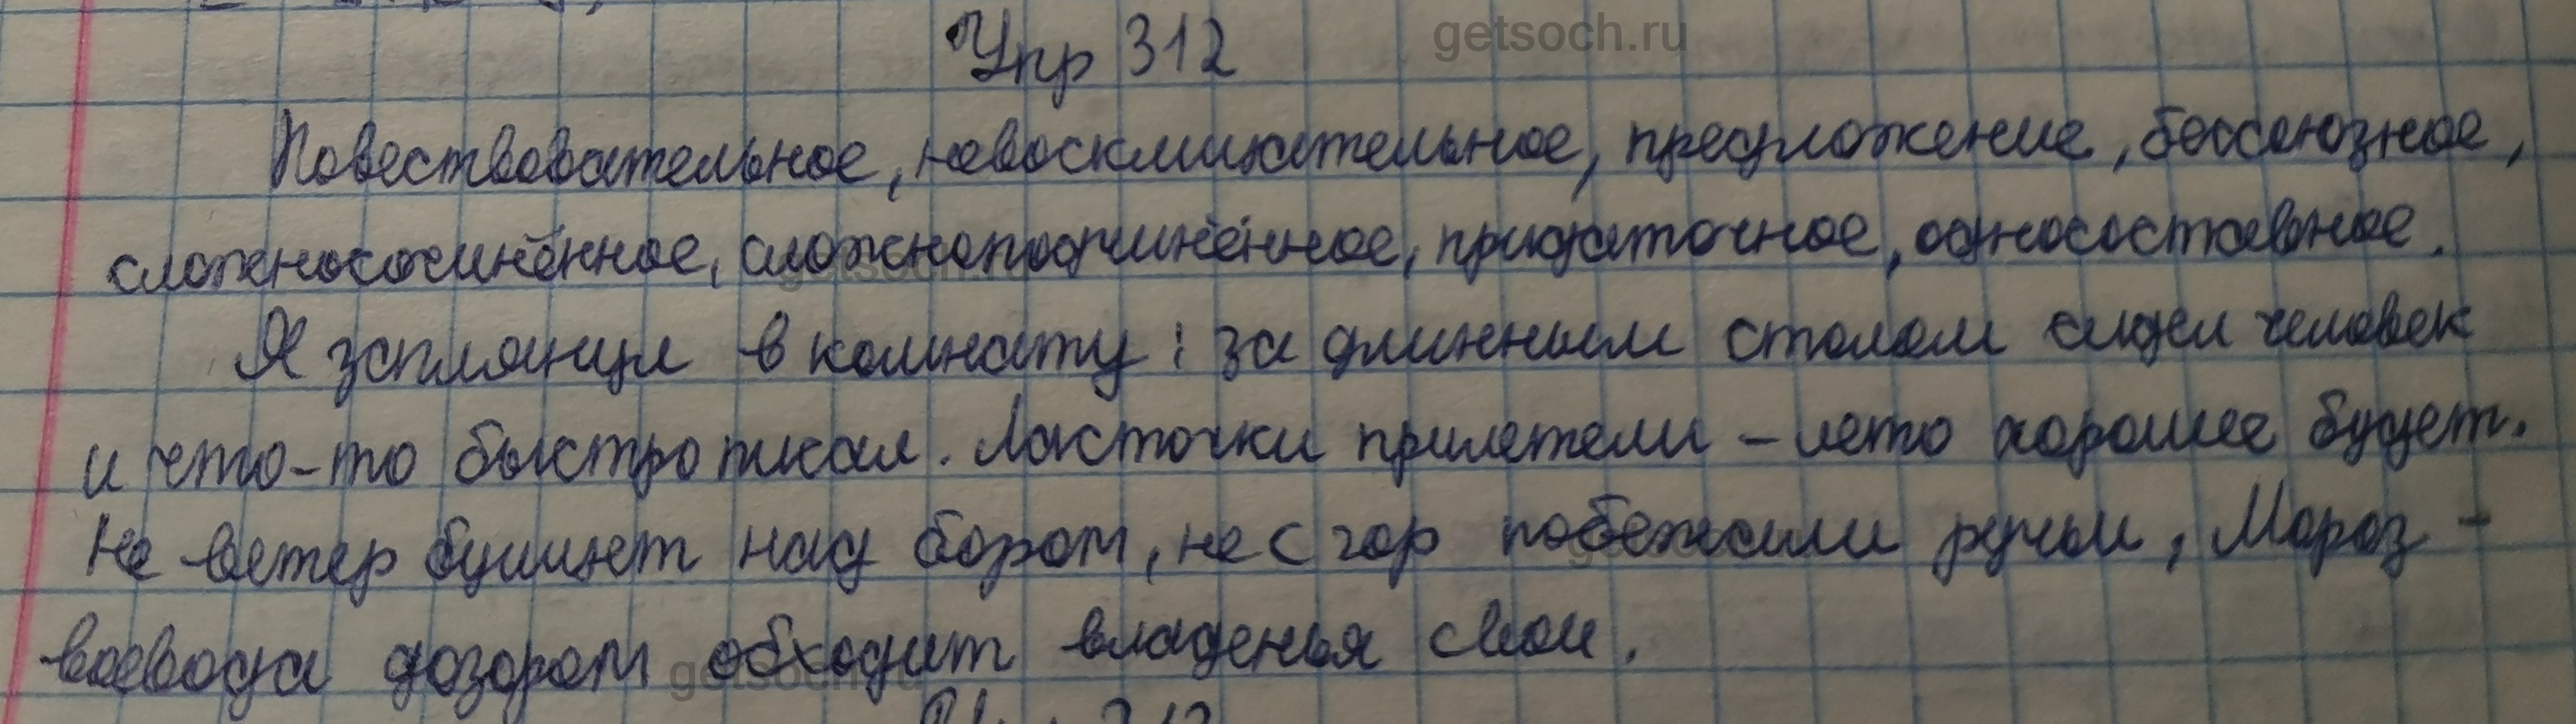 getsoch.ru
Упр 312
Повествовательное, невосклицательное, предложение, бессоюзное,
сложносочинённое, сложноподчинённое, придаточное, односоставное.
Я заглянул в комнату: за длинным столом сидел человек
и что-то быстро писал. Ласточки прилетели – лето хорошее будет.
Не ветер бушует над бором, не с гор побежали ручьи, Мороз -
воевода дозором обходит владенья свои.